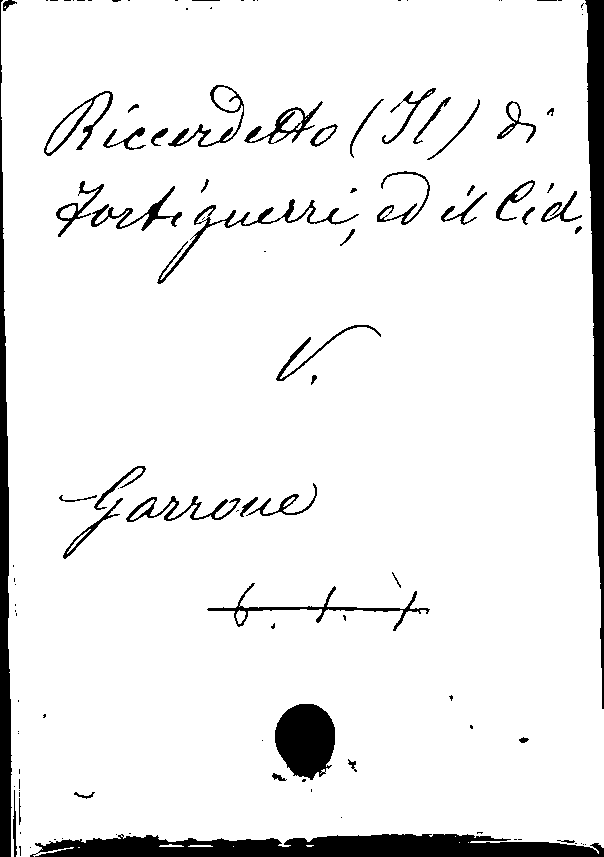 Riccardetto (Il) di
Fortiguerri, ed il Cid.
V.
Garrone
6. 1. 1